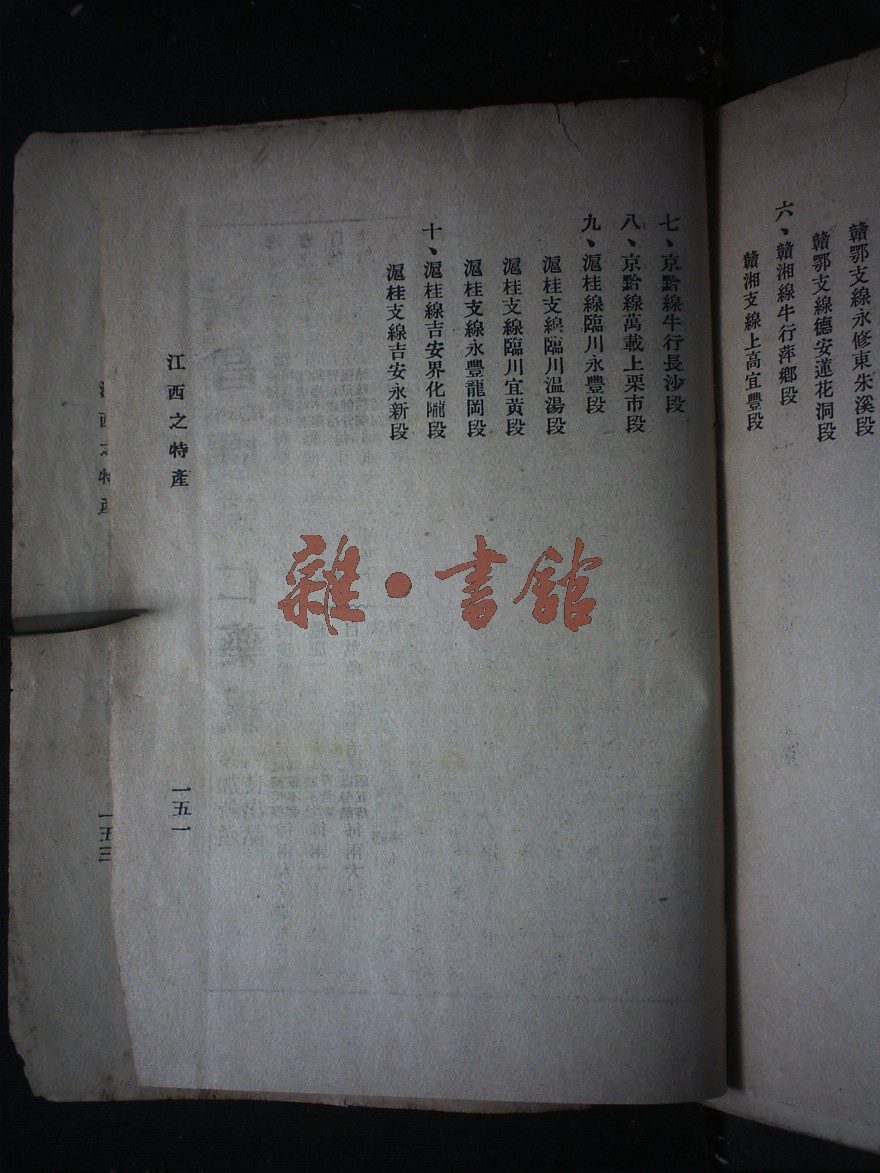 贛鄂支線永修東朱溪段
贛鄂支線德安蓮花洞段
六、贛湘線牛行萍鄉段
贛湘支線上高宜豐段
七、京黔線牛行長沙段
八、京黔線萬載上栗市段
九、滬桂線臨川永豐段
滬桂支線臨川温湯段
滬桂支線臨川宜黃段
滬桂支線永豐龍岡段
十、滬桂線吉安界化隴段
滬桂支線吉安永新段
江西之特產
一五一
西之特產
一五三
雜·書館